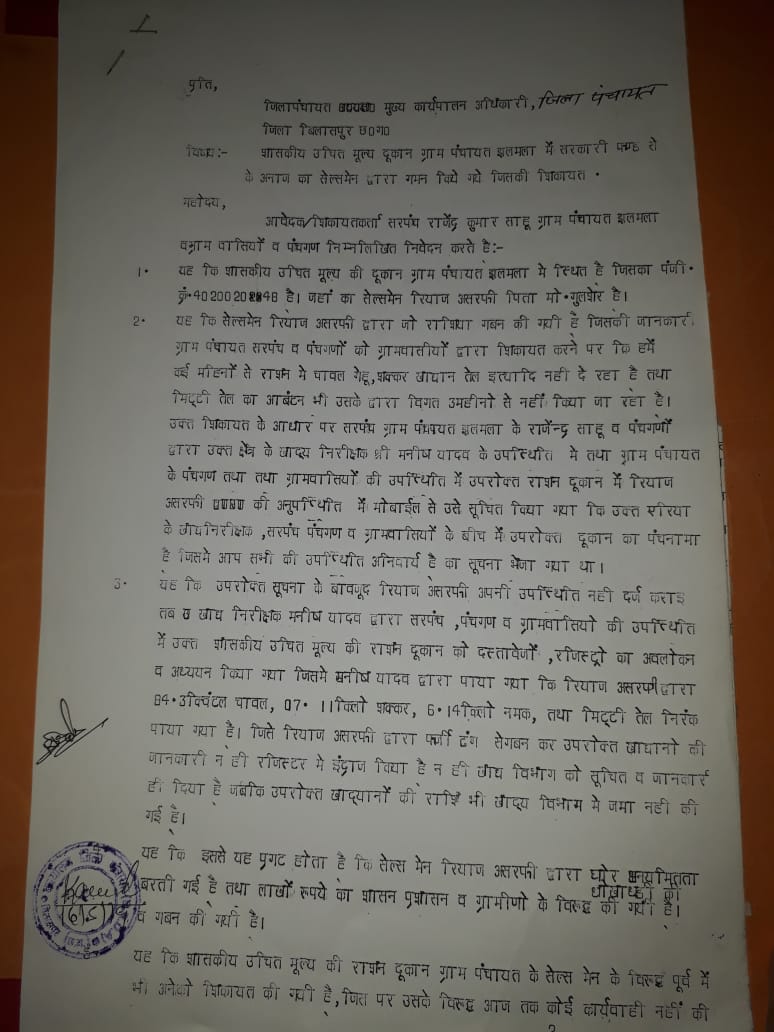 प्रति,
जिलापंचायत मुख्य कार्यपालन अधिकारी, जिला पंचायत
जिला बिलासपुर छ0ग0
विषय:- शासकीय उचित मूल्य दूकान ग्राम पंचायत झलमला में सरकारी फण्ड से
के अनाज का सेल्समेन द्वारा गमन किये गये जिसकी शिकायत •
महोदय,
आवेदक/शिकायतकर्ता सरपंच राजेंद्र कुमार साहू ग्राम पंचायत झलमला
वग्राम वासियों व पंचगण निम्नलिखित निवेदन करते है:-
1• यह कि शासकीय उचित मूल्य की दूकान ग्राम पंचायत झलमला मे स्थित है जिसका पंजी•
क्रं• है। जहां का सेल्समेन रियाज असरफी पिता मो•गुलशेर है।
2• यह कि सेल्समेन रियाज असरफी द्वारा जो राशिया गबन की गयी है जिसकी जानकारी
ग्राम पंचायत सरपंच व पंचगणों को ग्रामवासीयों द्वारा शिकायत करने पर कि हमें
कई महिनों से राशन मे चावल गेहू,शक्कर खाधान तेल इत्यादि नही दे रहा है तथा
मिट्टी तेल का आबंटन भी उसके द्वारा विगत 3महीनों से नहीं किया जा रहा है।
उक्त शिकायत के आधार पर सरपंच ग्राम पंचायत झलमला के राजेन्द्र साहू व पंचगणों
द्वारा उक्त क्षेत्र के खाद्य निरीक्षक श्री मनीष यादव के उपस्थिति मे तथा ग्राम पंचायत
के पंचगण तथा तथा ग्रामवासियों की उपस्थिति में उपरोक्त राशन दूकान में रियाज
असरफी की अनुपस्थिति में मोबाईल से उसे सूचित किया गया कि उक्त एरिया
के खाधनिरीक्षक ,सरपंच पंचगण व ग्रामवासियों के बीच में उपरोक्त दूकान का पंचनामा
है जिसमे आप सभी की उपस्थिति अनिवार्य है का सूचना भेजा गया था।
3• यह कि उपरोक्त सूचना के बावजूद रियाज असरफी अपनी उपस्थिति नही दर्ज कराइ
तब खाध निरीक्षक मनीष यादव द्वारा सरपंच ,पंचगण व ग्रामवासियो की उपस्थिति
में उक्त शासकीय उचित मूल्य की राशन दूकान को दस्तावेजों ,रजिस्ट्रो का अवलोकन
व अध्ययन किया गया जिसमे मनीष यादव द्वारा पाया गया कि रियाज असरफी द्वारा
84•3क्विंटल चावल, 07•11किलो शक्कर, 6•14किलो नमक, तथा मिट्टी तेल निरंक
पाया गया है। जिसे रियाज असरफी द्वारा फर्जी ढंग सेगबन कर उपरोक्त खाधानो की
जानकारी न ही रजिस्टर मे इंद्राज किया है न ही खाध विभाग को सूचित व जानकारी
ही दिया है जबकि उपरोक्त खाद्यानों की राशि भी खाद्य विभाग मे जमा नही की
गई है।
यह कि इससे यह प्रगट होता है कि सेल्स मेन रियाज असरफी द्वारा घोर अनयमितता
बरती गई है तथा लाखों रूपये का शासन प्रशासन व ग्रामीणो के विरूद्ध धोखाधड़ी की गयी है।
व गबन की गयी है।
यह कि शासकीय उचित मूल्य की राशन दूकान ग्राम पंचायत के सेल्स मेन के विरूद्ध पूर्व में
भी अनेको शिकायत की गयी है,जिस पर उसके विरूद्ध आज तक कोई कार्यवाही नहीं की